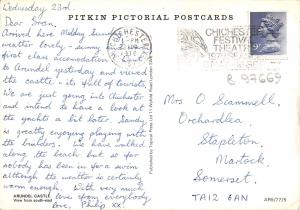 PITKIN PICTORIAL POSTCARDS
Wednesday 23rd.
Dear Gran,
Arrived here Midday Sunday
weather lovely - sunny
first class accomodation. Went
to Arundel yesterday and viewed
the castle. It's full of tourists
We are just going into Chichester
and intend to have a look at
the yachts a bit later. Sandy
is greatly enjoying playing with
the boulders. We have walked
along the beach but so far
nobody has been in for a swim
although the weather is certainly
warm enough. With very much
love from everybody
love, Philip xx
ARUNDEL CASTLE
View from south-east
CHICHESTER
FESTIVAL
THEATRE
9P
R 97669
Mrs O. Scammell,
Orchardlea,
Stapleton,
Martock,
Somerset.
TA12 6AN
AP6/77/5